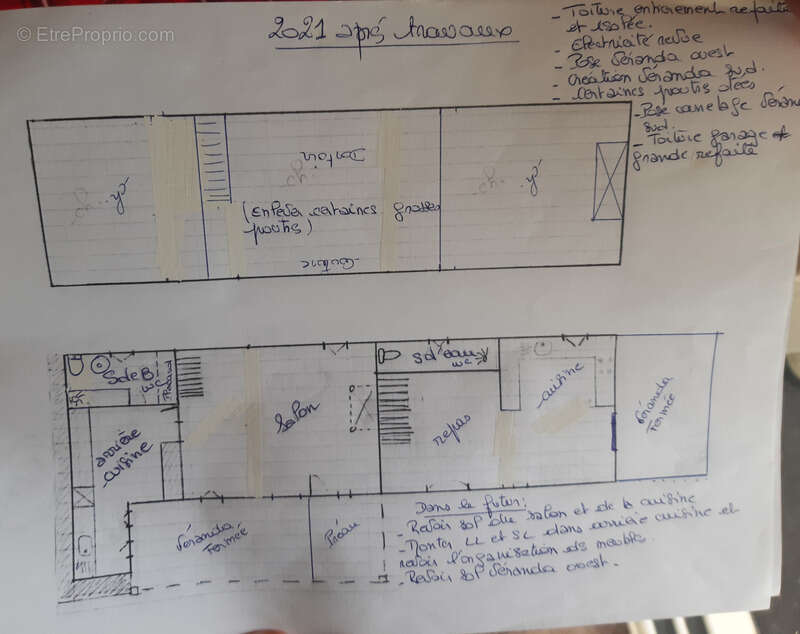 © EtreProprio.com
2021 après travaux
- Toiture entièrement refaite
et isolée.
- Electricité revue
- Pose Véranda ouest
- Création Véranda sud.
- Certaines poutres ôtées
- Pose carrelage Véranda
sud.
- Toiture garage +
grande refaite
(Enlever certaines grosses
poutres)
SdeB
WC
Placard
Sd'eau
WC
cuisine
Salon
repas
arrière
cuisine
Véranda
Fermée
Véranda
Fermée
Préau
Dans le futur:
- Revoir sol du salon et de la cuisine
- Monter LL et SL dans arrière cuisine et
revoir l'organisation des meubles.
- Revoir sol Véranda ouest.